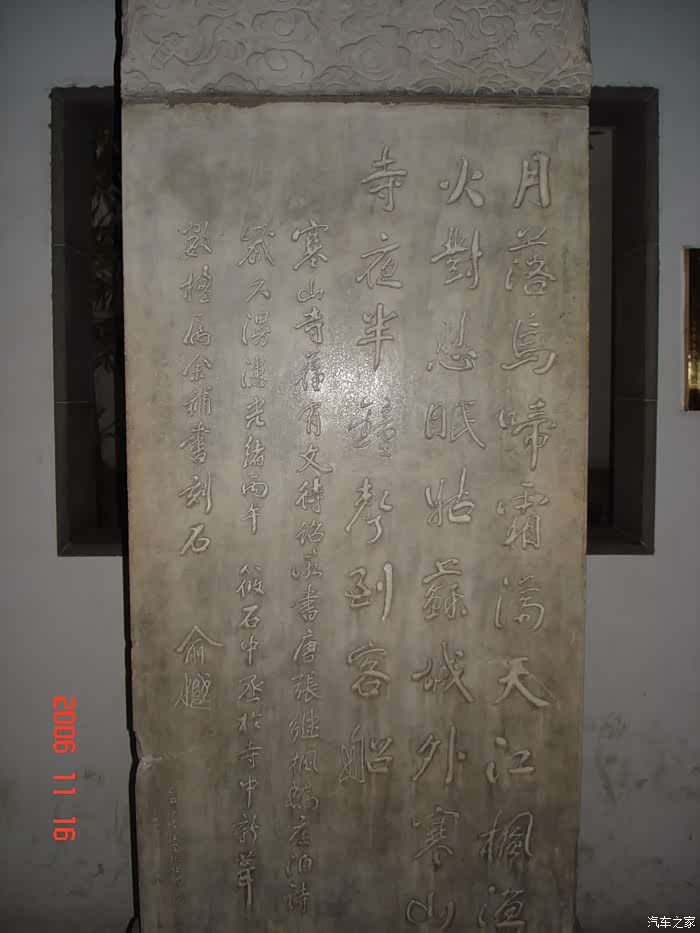 月落烏啼霜滿天江楓漁
火對愁眠姑蘇城外寒山
寺夜半鐘聲到客船
寒山寺舊有文待詔所書唐張繼楓橋夜泊詩
歲久漫漶光緒丙午 筱石中丞於寺中新葺
數楹屬余補書刻石
俞樾
2006 11 16
汽车之家